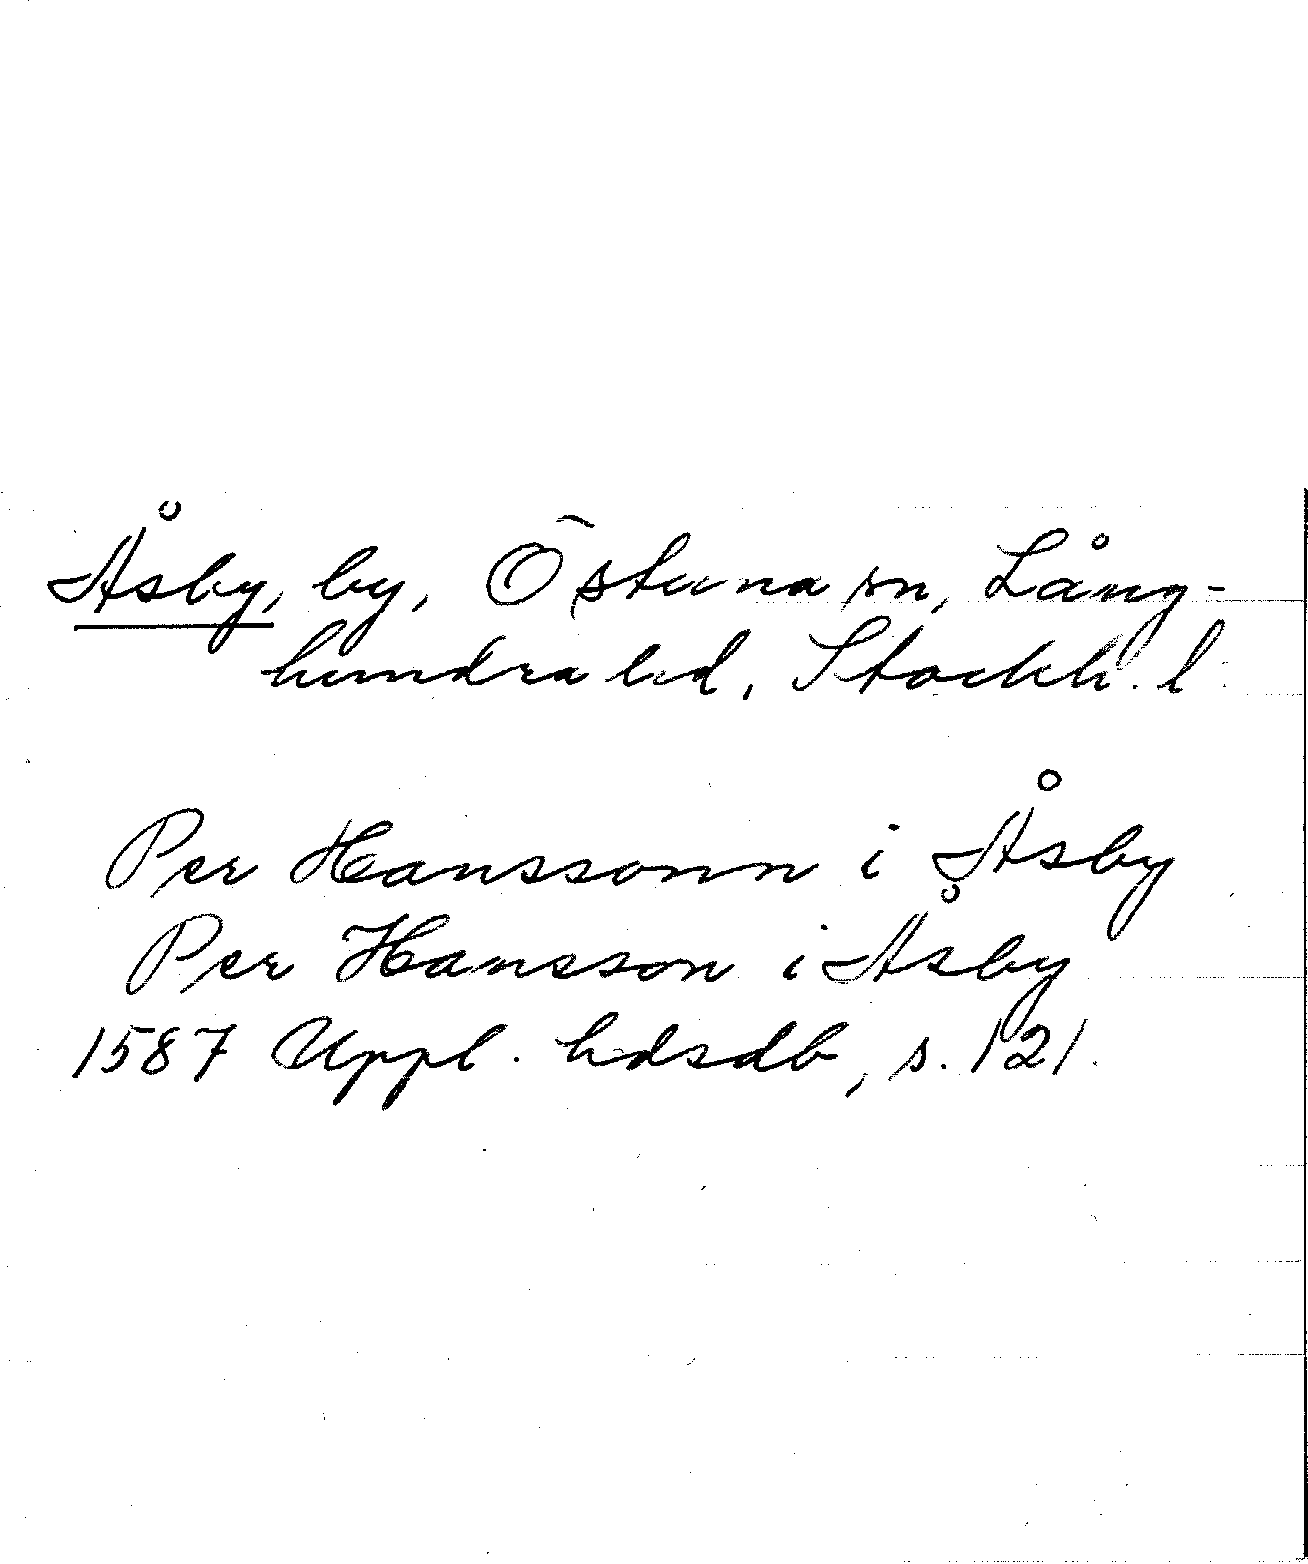 Åsby, by, Östuna sn, Lång-
hundra hd, Stockh. l.
Per Hanssonn i Åsby
Per Hansson i Åsby
1587 Uppl. hdsdb, s. 121.